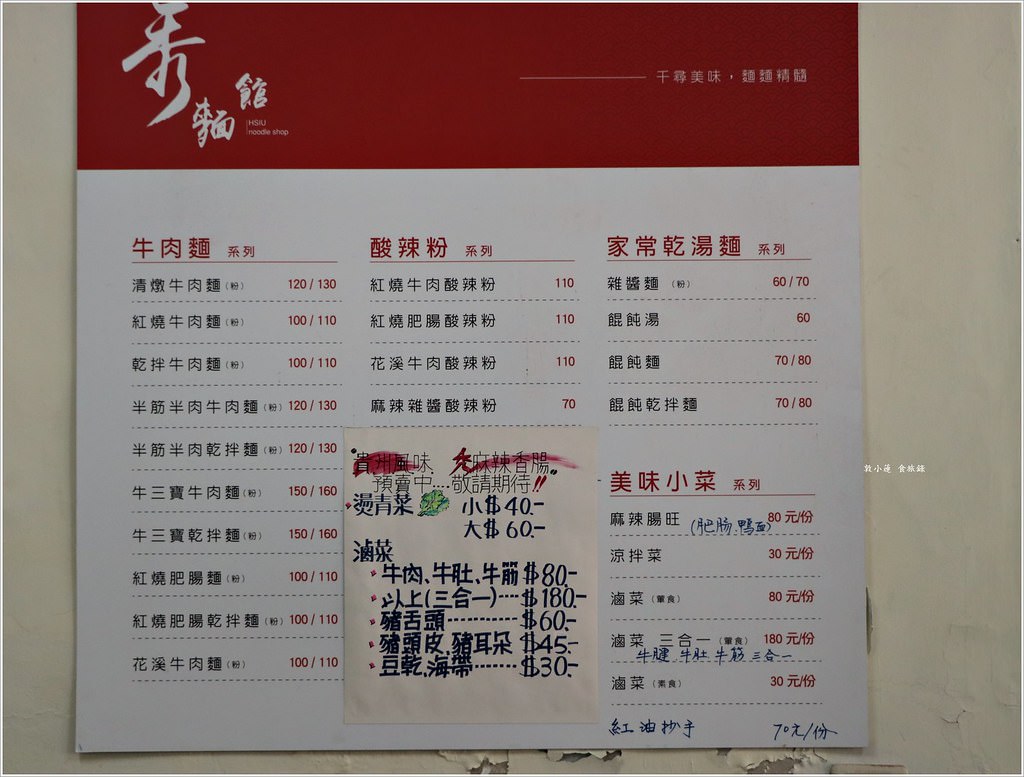 秀
麵館
HSIU
noodle shop
千尋美味，麵麵精髓
牛肉麵 系列
清燉牛肉麵(粉) 120 / 130
紅燒牛肉麵(粉) 100 / 110
乾拌牛肉麵(粉) 100 / 110
半筋半肉牛肉麵(粉) 120 / 130
半筋半肉乾拌麵(粉) 120 / 130
牛三寶牛肉麵(粉) 150 / 160
牛三寶乾拌麵(粉) 150 / 160
紅燒肥腸麵(粉) 100 / 110
紅燒肥腸乾拌麵(粉) 100 / 110
花溪牛肉麵(粉) 100 / 110
酸辣粉 系列
紅燒牛肉酸辣粉 110
紅燒肥腸酸辣粉 110
花溪牛肉酸辣粉 110
麻辣雜醬酸辣粉 70
貴州風味 麻辣香腸
預賣中....敬請期待!!
燙青菜 小$40.-
大$60.-
滷菜
牛肉、牛肚、牛筋 $80.-
以上(三合一)....$180.-
豬舌頭..........$60.-
豬頭皮,豬耳朵 $45.-
豆乾,海帶.......$30.-
家常乾湯麵 系列
雜醬麵 (粉) 60 / 70
餛飩湯 60
餛飩麵 70 / 80
餛飩乾拌麵 70 / 80
美味小菜 系列
麻辣腸旺 (肥腸.鴨血) 80 元/份
涼拌菜 30 元/份
滷菜(葷食) 80 元/份
滷菜 三合一(葷食) 180 元/份
牛腱 牛肚 牛筋 三合一
滷菜(素食) 30 元/份
紅油抄手 70元/份
敦小蓮 食旅錄